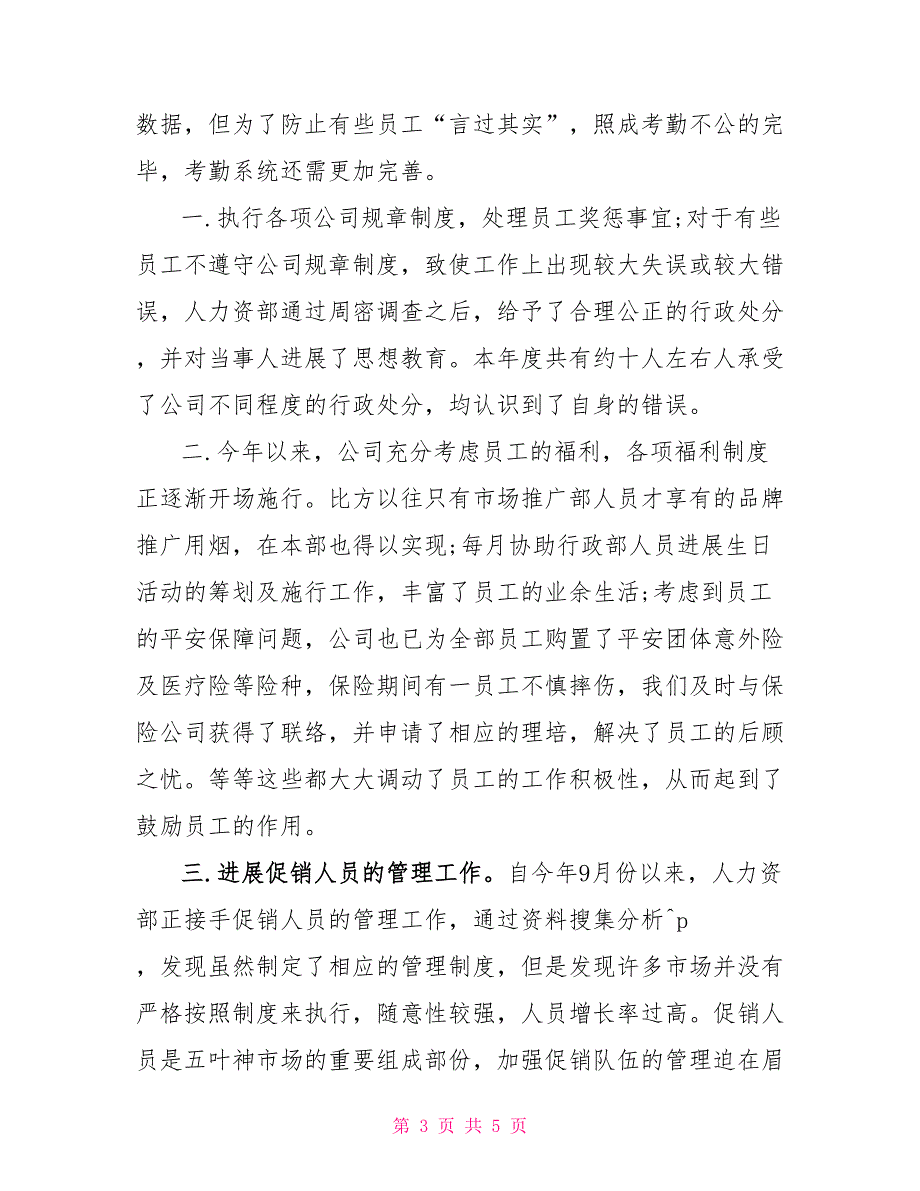 数据，但为了防止有些员工“言过其实”，照成考勤不公的完
毕，考勤系统还需更加完善。
一.执行各项公司规章制度，处理员工奖惩事宜;对于有些
员工不遵守公司规章制度，致使工作上出现较大失误或较大错
误，人力资部通过周密调查之后，给予了合理公正的行政处分
，并对当事人进展了思想教育。本年度共有约十人左右人承受
了公司不同程度的行政处分，均认识到了自身的错误。
二.今年以来，公司充分考虑员工的福利，各项福利制度
正逐渐开场施行。比方以往只有市场推广部人员才享有的品牌
推广用烟，在本部也得以实现;每月协助行政部人员进展生日
活动的筹划及施行工作，丰富了员工的业余生活;考虑到员工
的平安保障问题，公司也已为全部员工购置了平安团体意外险
及医疗险等险种，保险期间有一员工不慎摔伤，我们及时与保
险公司获得了联络，并申请了相应的理培，解决了员工的后顾
之忧。等等这些都大大调动了员工的工作积极性，从而起到了
鼓励员工的作用。
三.进展促销人员的管理工作。自今年9月份以来，人力资
部正接手促销人员的管理工作，通过资料搜集分析^p
，发现虽然制定了相应的管理制度，但是发现许多市场并没有
严格按照制度来执行，随意性较强，人员增长率过高。促销人
员是五叶神市场的重要组成部份，加强促销队伍的管理迫在眉
第 3 页 共 5 页